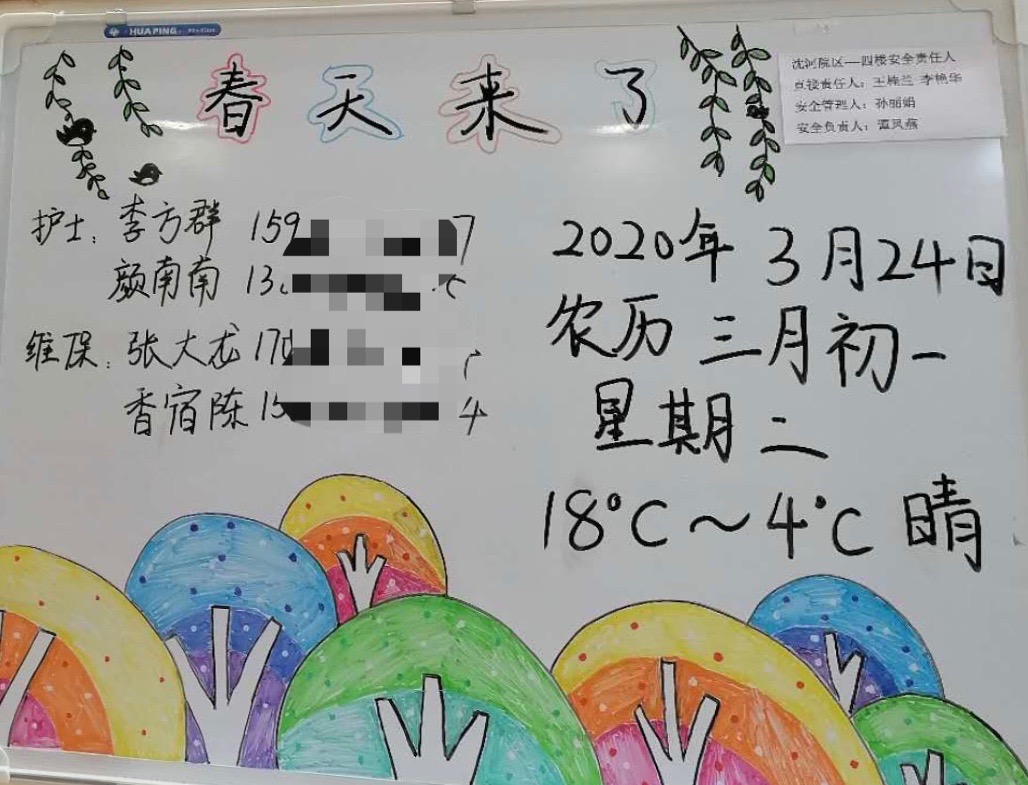 HUAPING
春天来了
沈河院区—四楼安全责任人
直接责任人：王桂兰 李艳华
安全管理人：孙丽娟
安全负责人：谭凤燕
护士：李方群 159 7
颜南南 13
维保：张大龙 17
香宿陈 15 4
2020年3月24日
农历三月初一
星期二
18℃～4℃ 晴